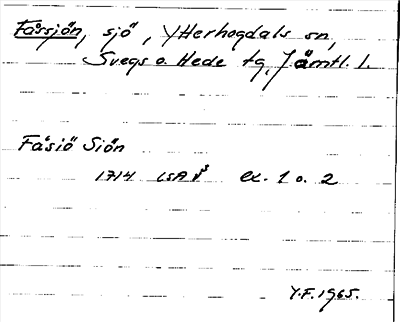 Fåssjön, sjö, Ytterhogdals sn,
Svegs o. Hede tg, Jämtl. l.
Fåsiö Siön
1714 LSA ex. 1 o. 2
Y.F. 1965.